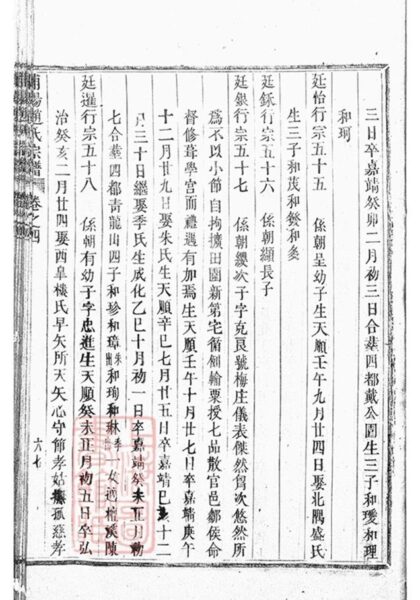 三日卒嘉靖癸卯二月初三日合葬四都戴公園生三子和瓊和理
和珂
廷怡行宗五十五 係朝呈幼子生天順壬午九月廿四日娶北隅盛氏
生三子和茂和
廷銶行宗五十六 係朝纘長子
廷銀行宗五十七 係朝纘次子字克艮號梅庄儀表傑然為次悠然所
為不以小節自拘擴田園新第宅循例輸粟授七品散官邑鄒侯命
督修葺學宮而禮遇有加焉生天順壬午十月廿七日卒嘉靖庚午
十二月廿九日娶朱氏生天順辛巳七月廿五日卒嘉靖己亥十二
月三十日繼娶季氏生成化乙巳十月初一日卒嘉靖癸未五月初
七合葬四都青龍山四子和珍和璋和珣和琳一女適檀溪陳
廷暹行宗五十八 係朝有幼子字忠進生天順癸未正月初五日卒弘
治癸亥二月廿四娶西皐樓氏早矢所天矢心守節孝姑撫孤慈孝
浦陽趙氏宗譜 卷之四
六七